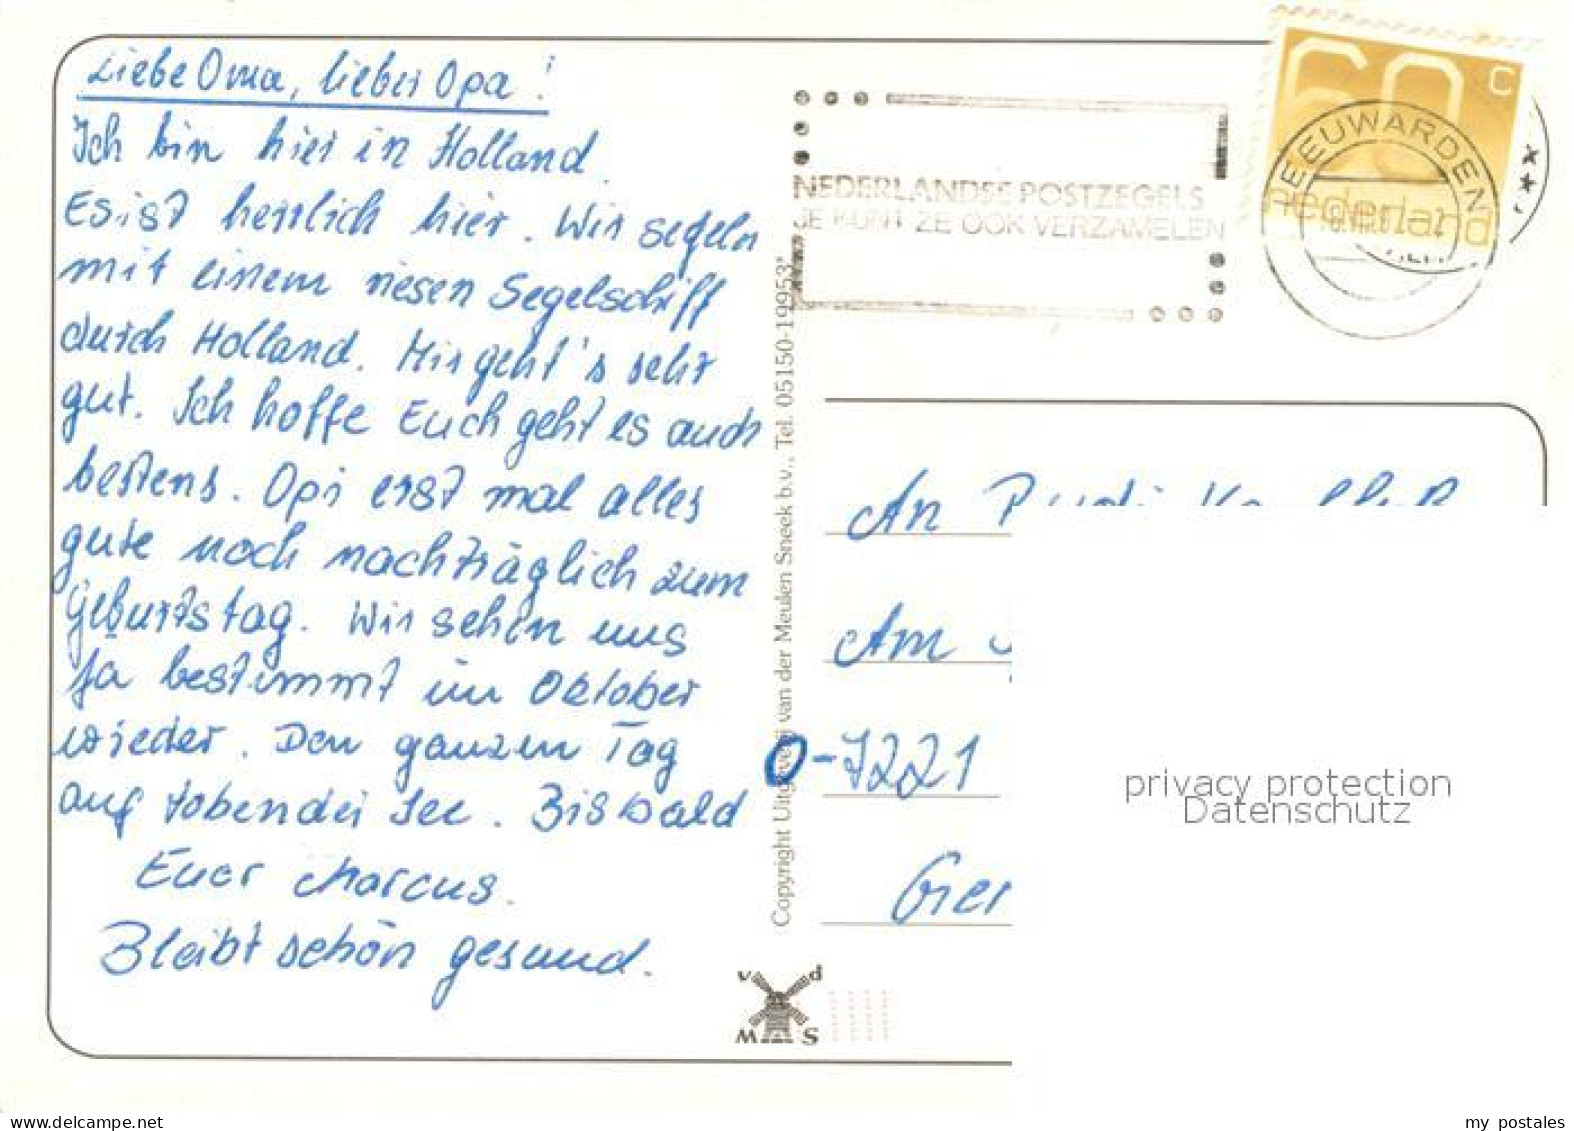 Liebe Oma, lieber Opa!
Ich bin hier in Holland.
Es ist herrlich hier. Wir segeln
mit einem riesen Segelschiff
durch Holland. Mir geht's sehr
gut. Ich hoffe Euch geht es auch
bestens. Opi erst mal alles
gute noch nachträglich zum
Geburtstag. Wir sehen uns
ja bestimmt im Oktober
wieder. Den ganzen Tag
auf tobender See. Bis bald
Euer Marcus.
Bleibt schön gesund.
Copyright Uitgeverij van der Meulen Sneek b.v., Tel. 05150-19953*
v d
M S
NEDERLANDSE POSTZEGELS
JE KUNT ZE OOK VERZAMELEN
60 C
nederland
LEEUWARDEN
An Rudi
Am
O-7221
Ger
privacy protection
Datenschutz
delcampe.net
my postales